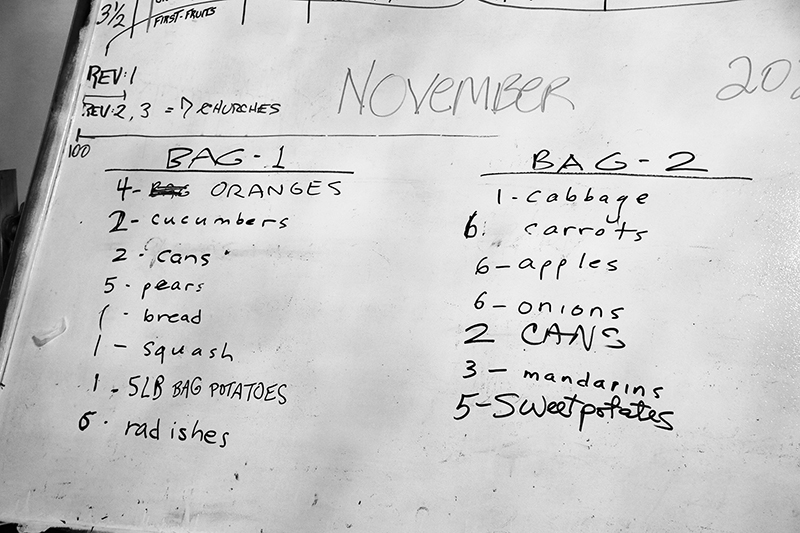 3½
FIRST-FRUITS
REV:1
REV:2, 3 = 7 CHURCHES
NOVEMBER
100
BAG-1
4- ORANGES
2-cucumbers
2- cans
5- pears
1- bread
1- squash
1- 5LB BAG POTATOES
6- radishes
BAG-2
1-cabbage
6. carrots
6-apples
6-onions
2 CANS
3- mandarins
5-Sweetpotates